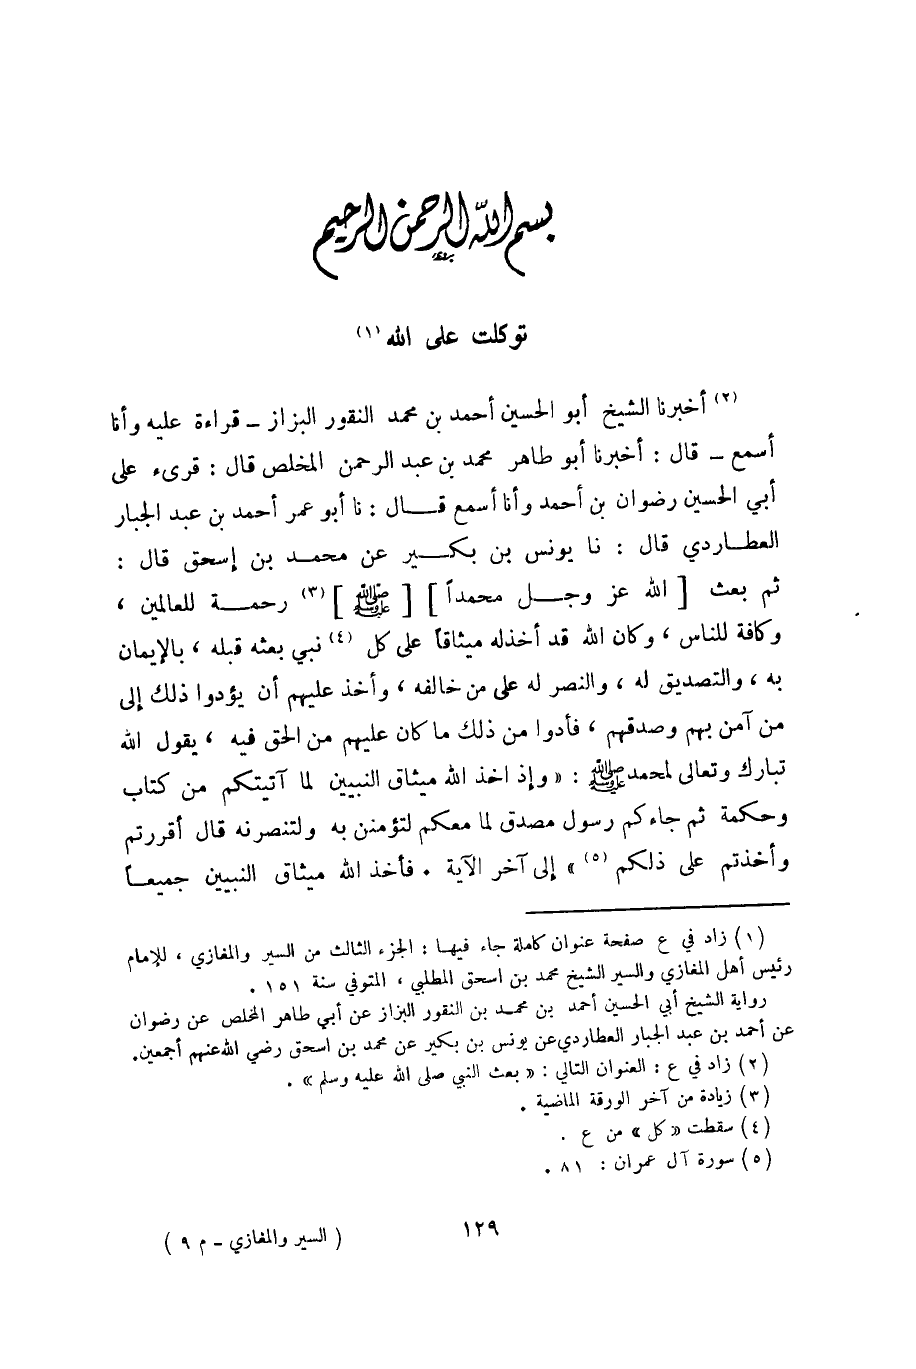 بسم الله الرحمن الرحيم
توكلت على الله (١)
(٢) أخبرنا الشيخ أبو الحسين أحمد بن محمد النقور البزاز ــ قراءة عليه وأنا
أسمع ــ قال : أخبرنا أبو طاهر محمد بن عبد الرحمن المخلص قال : قرىء على
أبي الحسين رضوان بن أحمد وأنا أسمع قال : نا أبو عمر أحمد بن عبد الجبار
العطاردي قال : نا يونس بن بكير عن محمد بن إسحق قال :
ثم بعث [ الله عز وجل محمداً ] [ ﷺ ] (٣) رحمة للعالمين ،
وكافة للناس ، وكان الله قد أخذله ميثاقاً على كل (٤) نبي بعثه قبله ، بالإيمان
به ، والتصديق له ، والنصر له على من خالفه ، وأخذ عليهم أن يؤدوا ذلك إلى
من آمن بهم وصدقهم ، فأدوا من ذلك ما كان عليهم من الحق فيه ، يقول الله
تبارك وتعالى لمحمد ﷺ : « وإذ اخذ الله ميثاق النبيين لما آتيتكم من كتاب
وحكمة ثم جاءكم رسول مصدق لما معكم لتؤمنن به ولتنصرنه قال أقررتم
وأخذتم على ذلكم (٥) » إلى آخر الآية . فأخذ الله ميثاق النبيين جميعاً
(١) زاد في ع صفحة عنوان كاملة جاء فيها : الجزء الثالث من السير والمغازي ، للإمام
رئيس أهل المغازي والسير الشيخ محمد بن اسحق المطلبي ، المتوفي سنة ١٥١ .
رواية الشيخ أبي الحسين أحمد بن محمد بن النقور البزاز عن أبي طاهر المخلص عن رضوان
عن أحمد بن عبد الجبار العطاردي عن يونس بن بكير عن محمد بن اسحق رضي الله عنهم أجمعين.
(٢) زاد في ع : العنوان التالي : « بعث النبي صلى الله عليه وسلم » .
(٣) زيادة من آخر الورقة الماضية .
(٤) سقطت « كل » من ع .
(٥) سورة آل عمران : ٨١ .
١٢٩
( السير والمغازي ــ م ٩ )